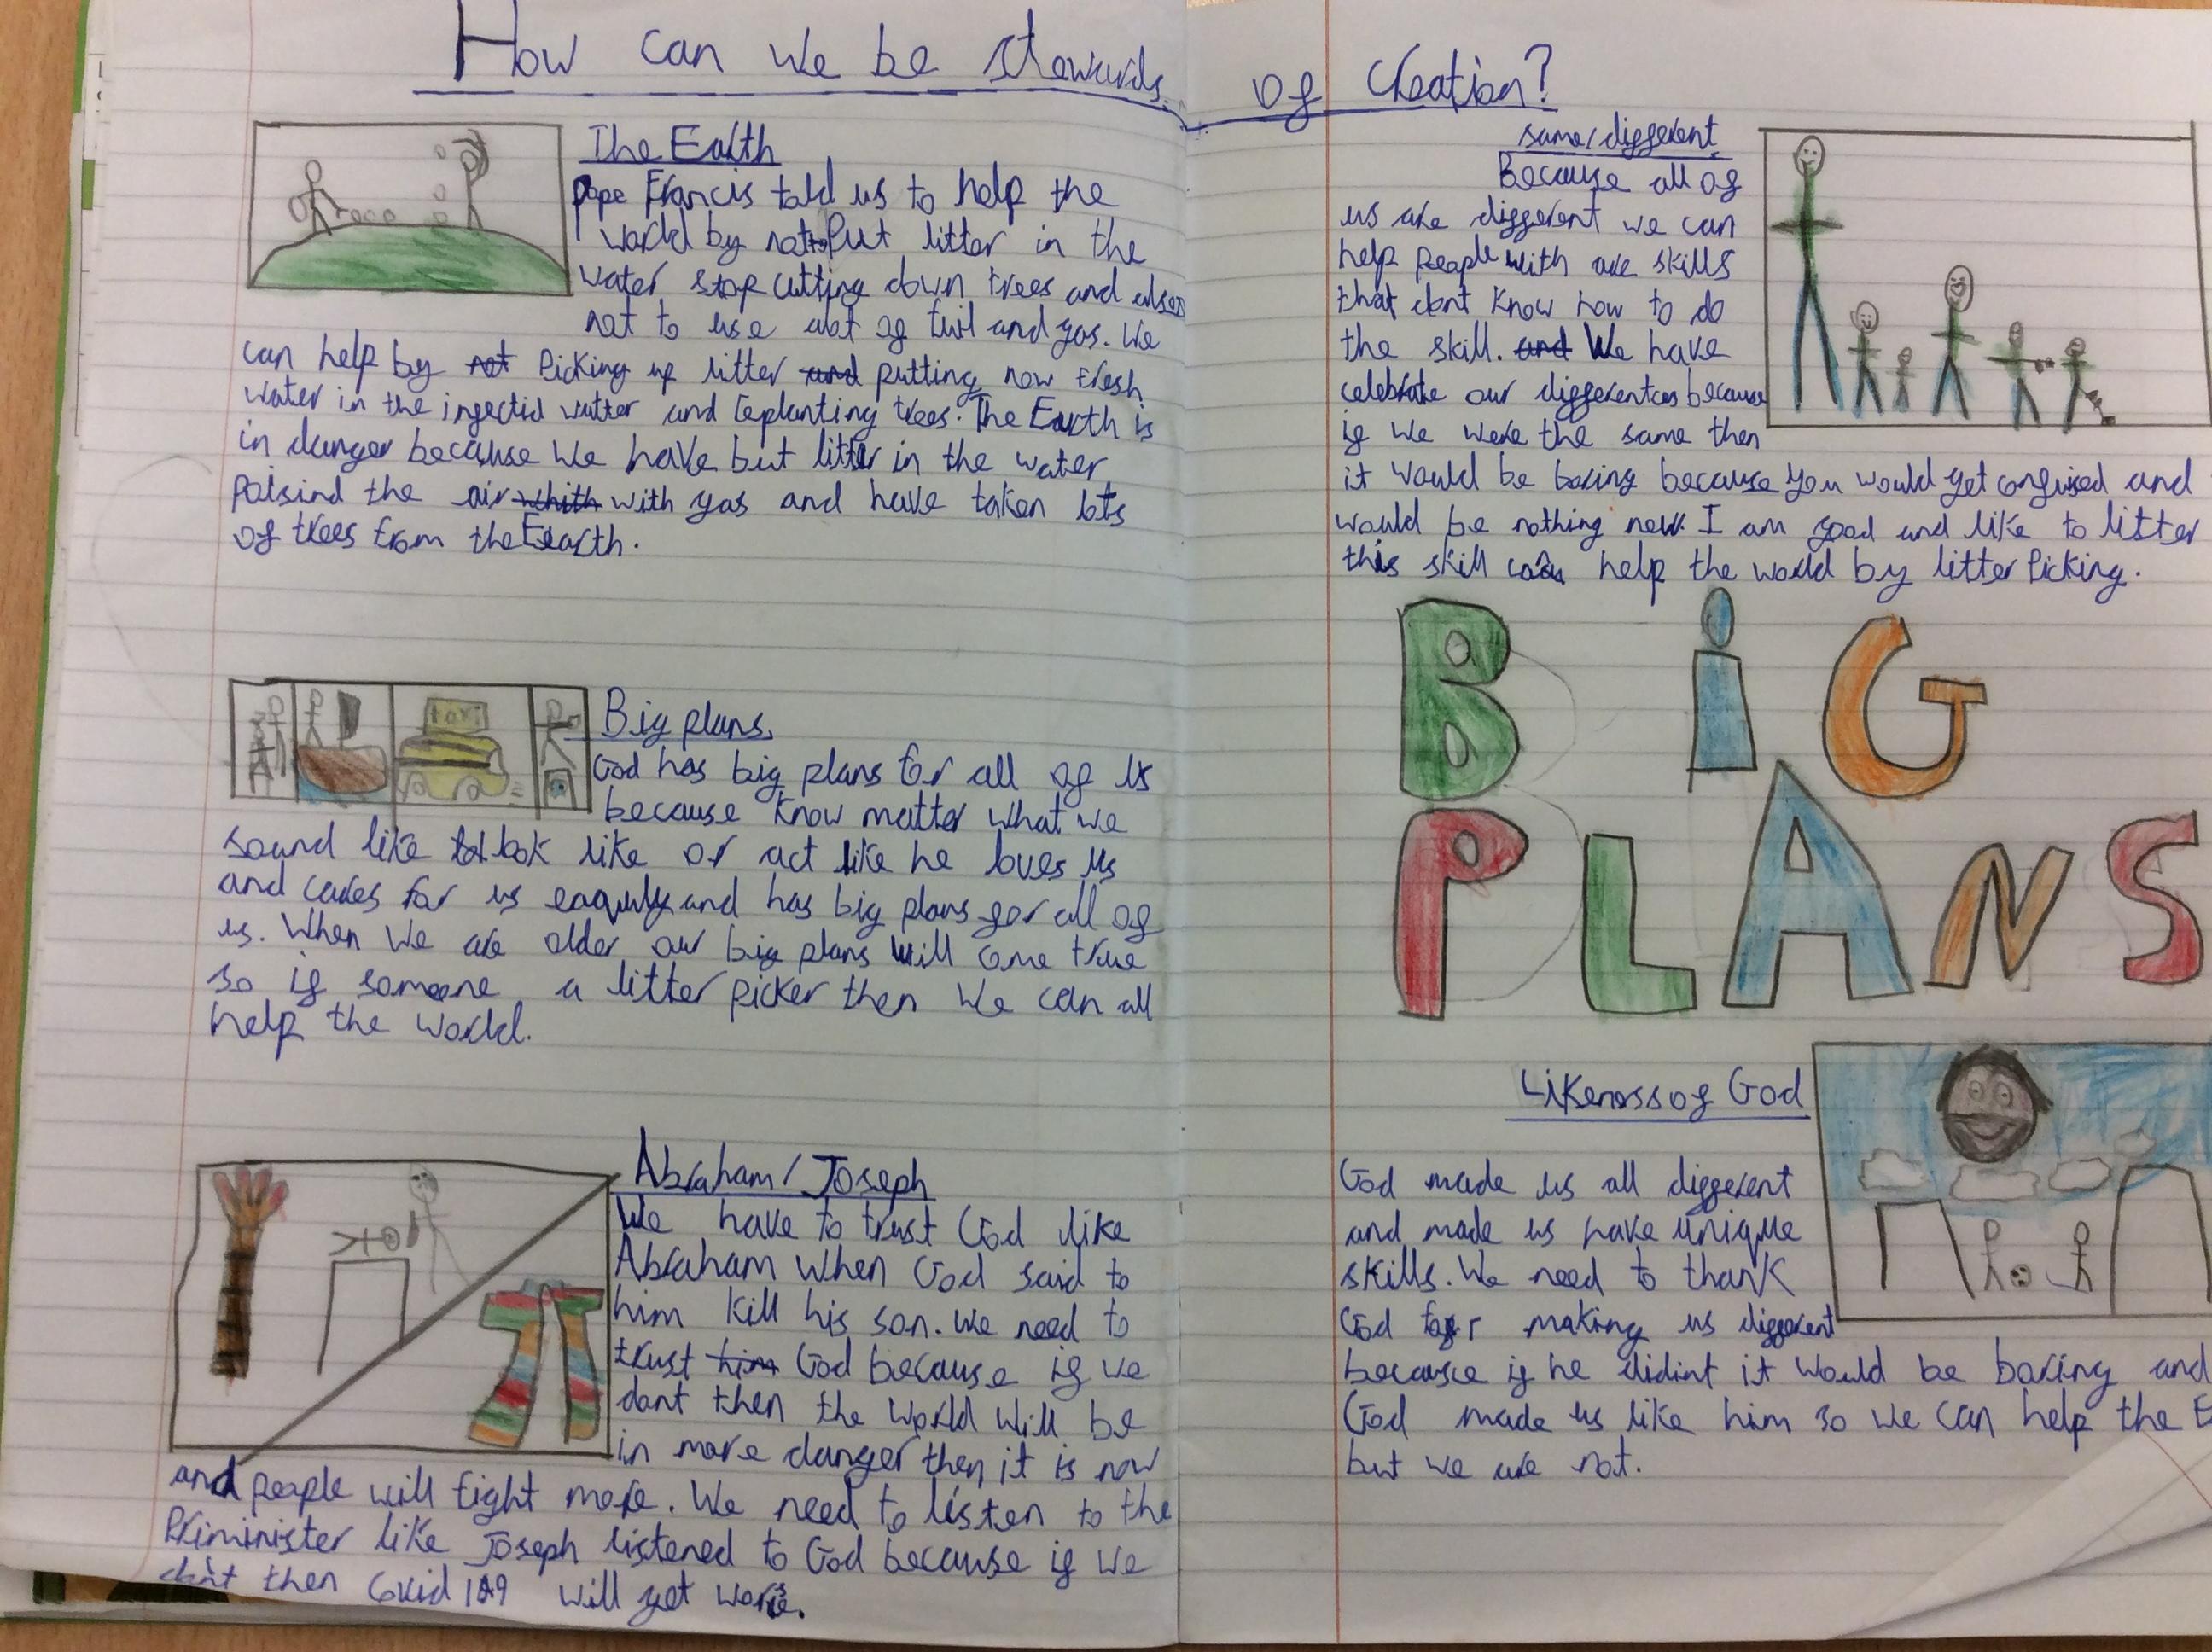 How can we be stewards of creation?
The Earth
Pope Francis told us to help the
world by not to Put litter in the
water stop cutting down trees and also
not to use alot of fuil and gas. We
can help by not Picking up litter and putting now fresh
water in the ingectid watter and replanting trees. The Earth is
in danger because we have but litter in the water
Poisind the air whith with gas and have taken lots
of trees from the Earth.
taxi
Big plans
God has big plans for all of us
because know matter what we
sound like look like or act like he loves us
and cares for us and has big plans for all of
us. When we are older our big plans will come true
so if someone a litter picker then we can all
help the world.
Abraham/Joseph
We have to trust God like
Abraham when God said to
him kill his son. We need to
trust him God because if we
dont then the world will be
in more danger then it is now
and people will fight more. We need to listen to the
Priminister like Joseph listened to God because if we
don't then Covid 19 will get worse.
same/different
Because all of
us are different we can
help People with are skills
that dont know how to do
the skill. and We have
celebrate our differentces because
if we were the same then
it would be boring because you would get confused and
would be nothing new. I am good and like to litter
this skill can help the world by litter Picking.
BiG
PLANS
Likeness of God
God made us all different
and made us have unique
skills. We need to thank
God for making us different
because if he didint it would be boring and
God made us like him so we can help the E
but we are not.